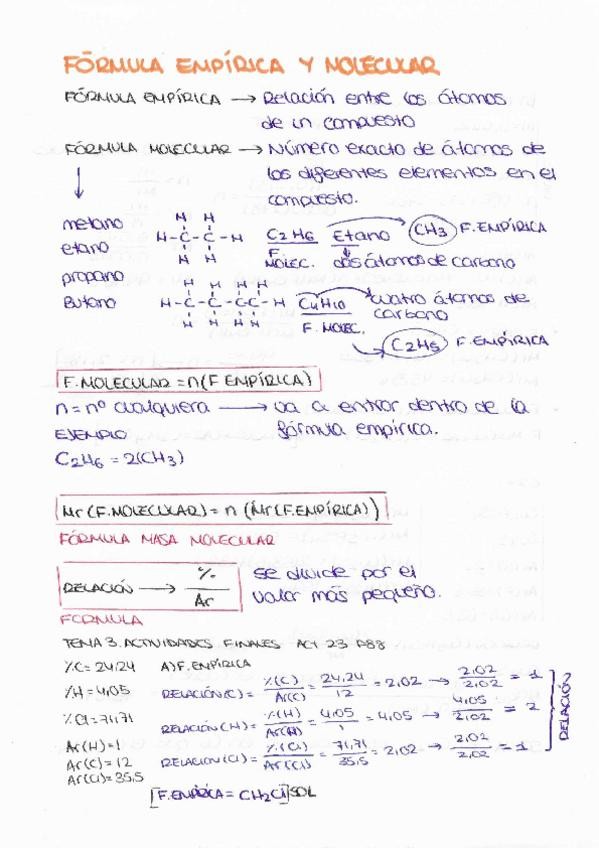 FÓRMULA EMPÍRICA Y MOLECULAR
FÓRMULA EMPÍRICA → Relación entre los átomos
de un compuesto
FÓRMULA MOLECULAR → Número exacto de átomos de
los diferentes elementos en el
compuesto.
metano
etano
propano
Butano
H H
H-C-C-H
H H
C2H6 Etano CH3 F.EMPÍRICA
F
MOLEC. dos átomos de carbono
H H H H
H-C-C-C-C-H
H H H H
C4H10 cuatro átomos de
carbono
F. MOLEC.
C2H5 F. EMPÍRICA
F.MOLECULAR = n(F EMPÍRICA)
n = nº cualquiera → va a entrar dentro de la
fórmula empírica.
EJEMPLO
C2H6 = 2(CH3)
Mr (F.MOLECULAR) = n (Mr(F.EMPÍRICA))
FÓRMULA MASA MOLECULAR
RELACIÓN → %/Ar
se divide por el
valor más pequeño.
FORMULA
TEMA 3. ACTIVIDADES FINALES ACT 23 P88
%C = 24,24 A) F. EMPÍRICA
%H = 4,05
%Cl = 71,71
Ar(H) = 1
Ar(C) = 12
Ar(Cl) = 35,5
RELACIÓN (C) = %(C)/Ar(C) = 24,24/12 = 2,02 → 2,02/2,02 = 1
RELACIÓN (H) = %(H)/Ar(H) = 4,05/1 = 4,05 → 4,05/2,02 = 2
RELACIÓN (Cl) = %(Cl)/Ar(Cl) = 71,71/35,5 = 2,02 → 2,02/2,02 = 1
RELACIÓN
F.EMPÍRICA = CH2Cl SOL